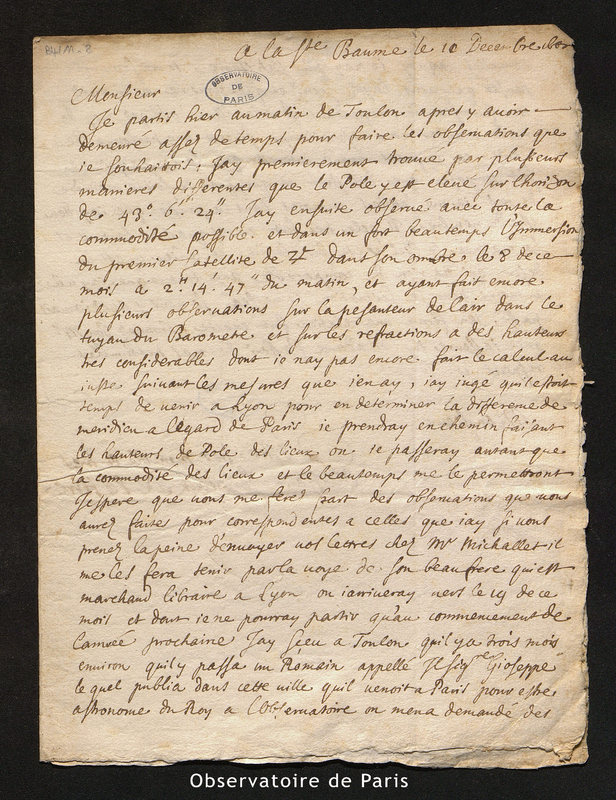 BIIM. 2
a la Ste Baume le 10 Decembre
OBSERVATOIRE
DE
PARIS
Monsieur
Je partis hier au matin de Toulon apres y avoir
demeuré assez de temps pour faire les observations que
ie souhaittois; Jay premierement trouvé par plusieurs
manieres differentes que le Pole y est elevé sur lhorizon
de 43° 6' 24" Jay ensuite observé avec toute la
commodité possible et dans un fort beau temps l'Immersion
du premier satellite de ♃ dans son ombre le 8 de ce
mois a 2h 14' 47" du matin, et ayant fait encore
plusieurs observations sur la pesanteur de lair dans le
tuyau du Barometre et sur les refractions a des hauteurs
tres considerables dont ie nay pas encore fait le calcul au
iuste suivant les mesures que ien ay, iay iugé quil estoit
temps de venir a Lyon pour en determiner la difference de
meridien a legard de Paris ie prendray en chemin faisant
les hauteurs de Pole des lieux ou ie passeray autant que
la commodité des lieux et le beau temps me le permettront
Jespere que vous me ferez part des observations que vous
aurez faites pour correspondentes a celles que iay si vous
prenez la peine denvoyer vos lettres chez Mr Michallet il
me les fera tenir par la voye de son beau frere qui est
marchand libraire a Lyon ou iarriveray vers le 19 de ce
mois et dont ie ne pourray partir qu'au commencement de
lannée prochaine Jay sceu a Toulon quil y a trois mois
environ quil y passa un Romain appellé Il Sigre Gioseppe
le quel publia dans cette ville quil venoit a Paris pour estre
astronome du Roy a lObservatoire on men a demandé des
Observatoire de Paris